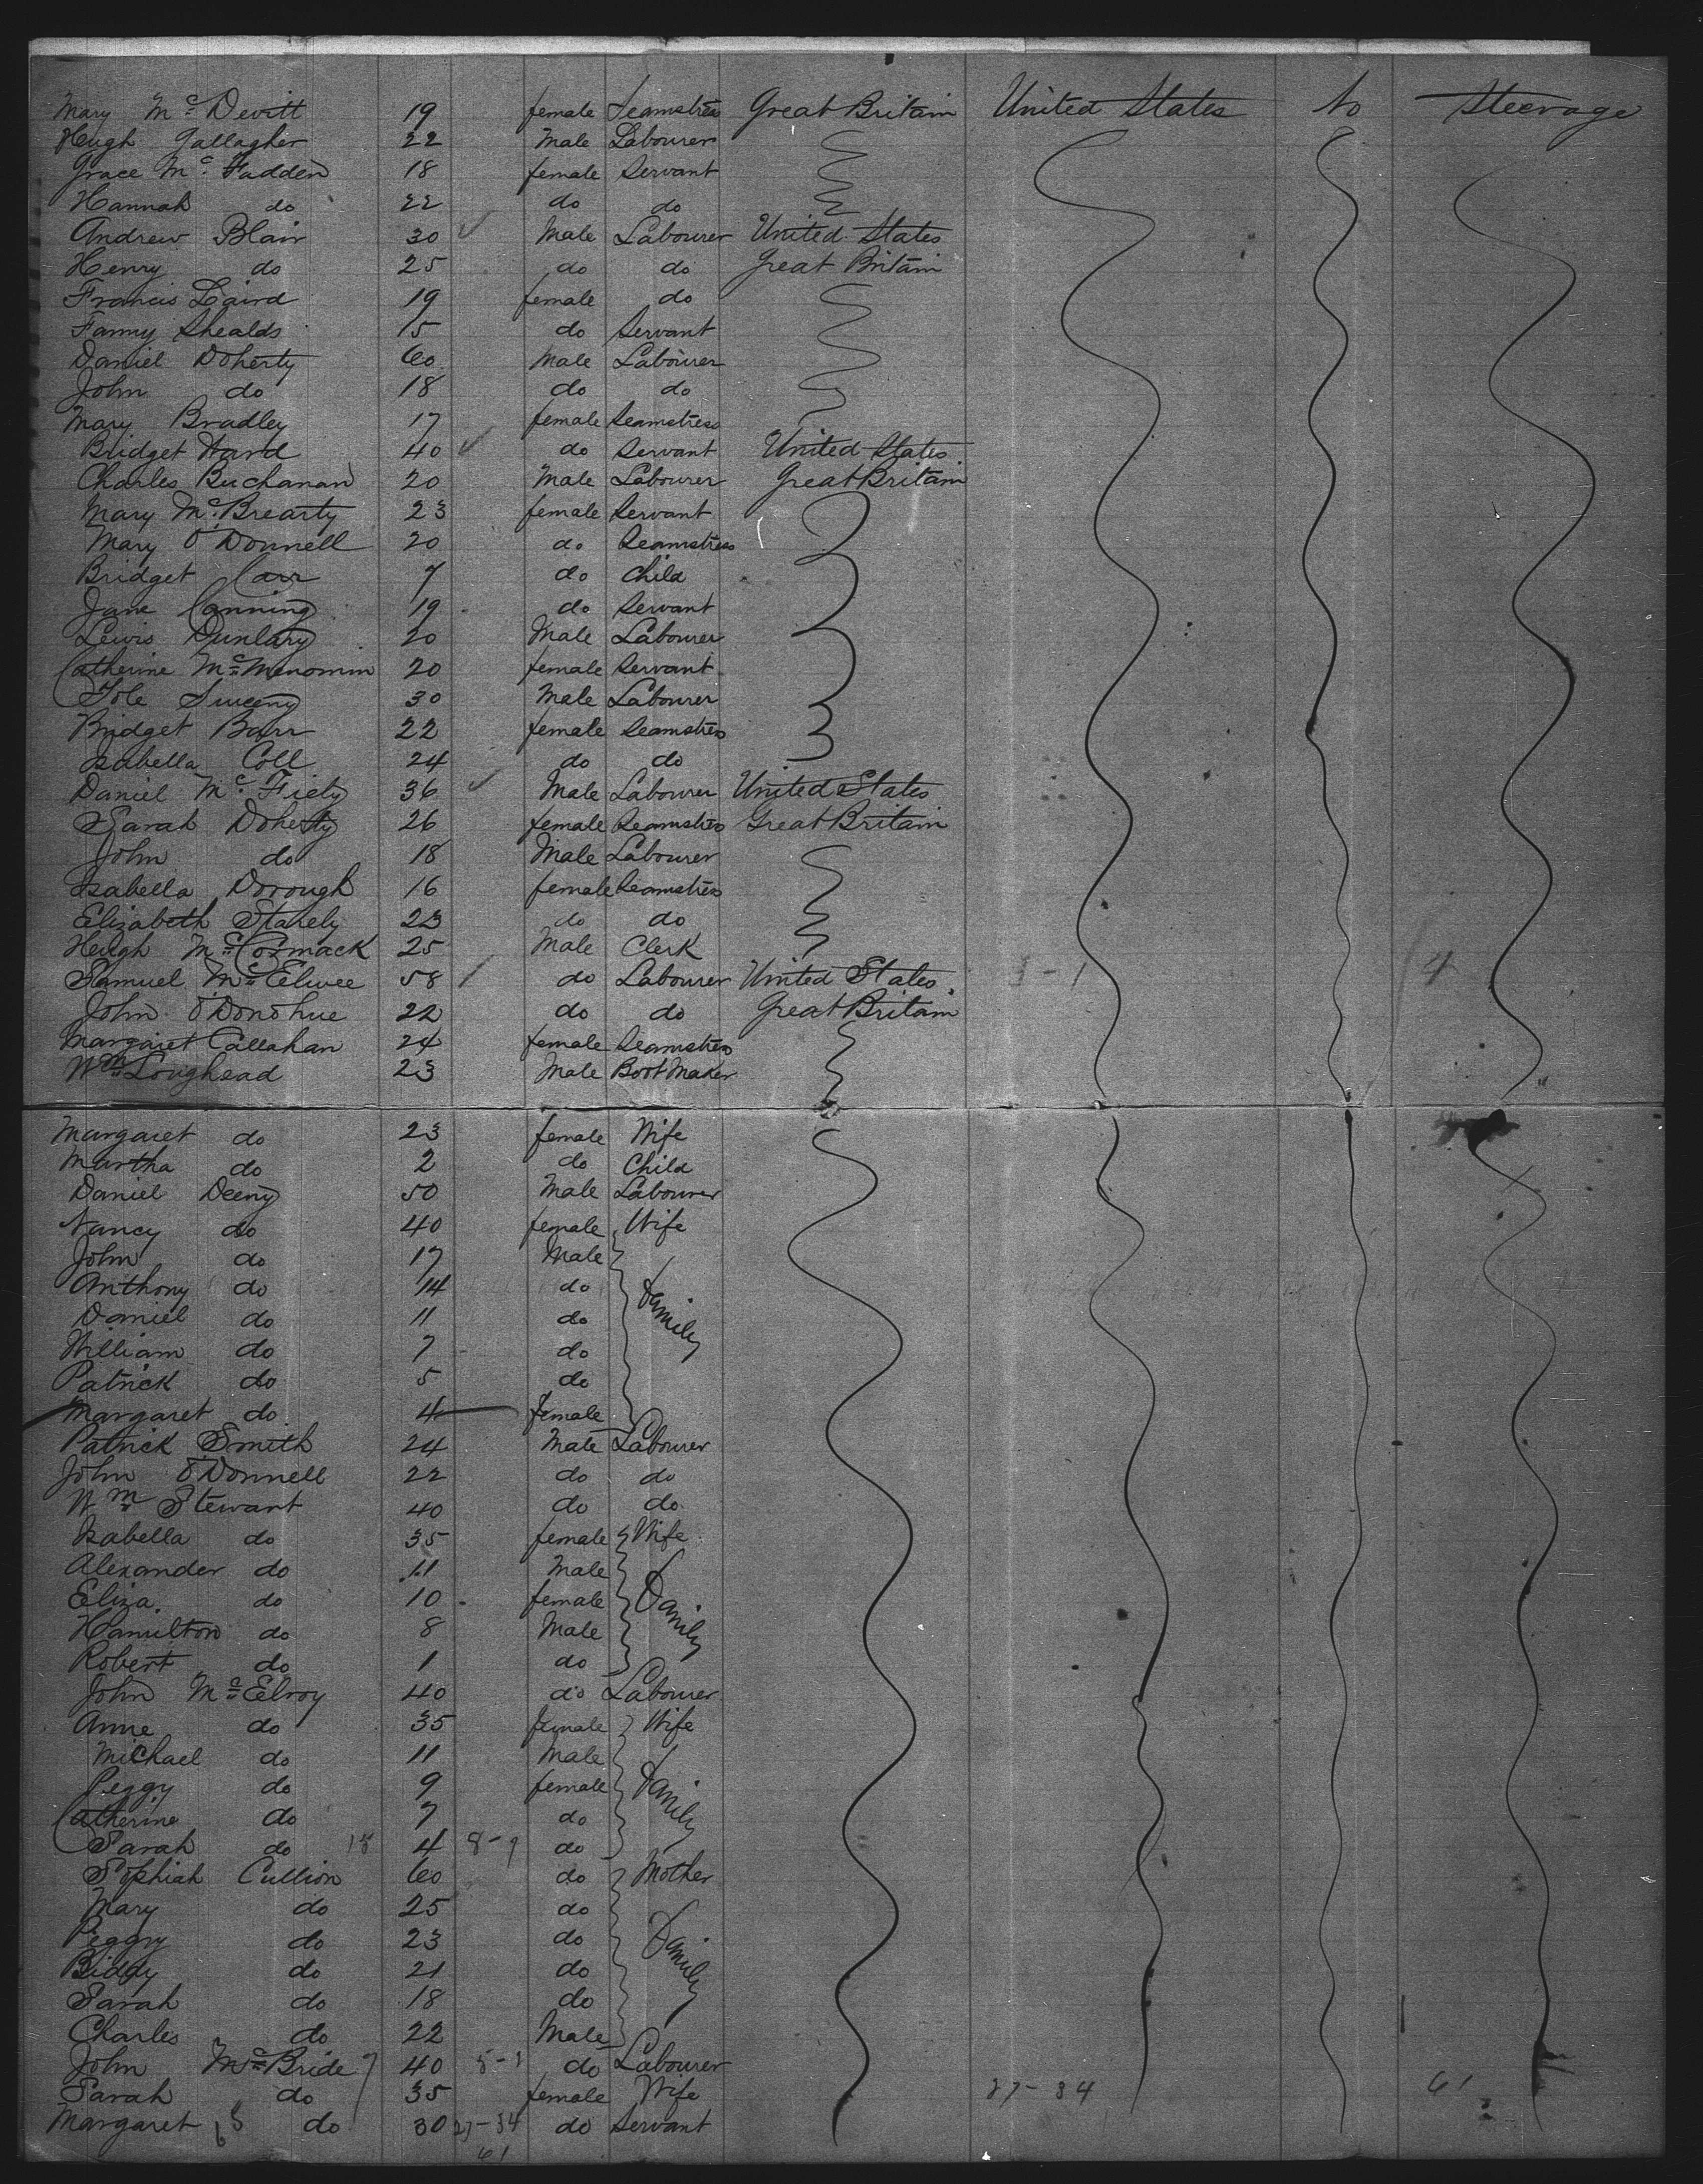 Mary McDevitt 19 female Seamstress Great Britain United States No Steerage
Hugh Gallagher 22 Male Labourer
Grace McFadden 18 female Servant
Hannah do 22 do do
Andrew Blair 30 Male Labourer United States
Henry do 25 do do Great Britain
Francis Laird 19 female do
Fanny Shealds 15 do Servant
Daniel Doherty 60 Male Labourer
John do 18 do do
Mary Bradley 17 female Seamstress
Bridget Ward 40 do Servant United States
Charles Buchanan 20 Male Labourer Great Britain
Mary McBrearty 23 female Servant
Mary O'Donnell 20 do Seamstress
Bridget Carr 7 do Child
Jane Canning 19 do Servant
Lewis Dunlavy 20 Male Labourer
Catherine McMenomin 20 female Servant
Sweeny 30 Male Labourer
Bridget Barr 22 female Seamstress
Isabella Coll 24 do do
Daniel McFiely 36 Male Labourer United States
Sarah Doherty 26 female Seamstress Great Britain
John do 18 Male Labourer
Isabella Dorough 16 female Seamstress
Elizabeth Stakely 23 do do
Hugh McCormack 25 Male Clerk
Samuel McElwee 58 do Labourer United States
John O'Donohue 22 do do Great Britain
Margaret Callahan 24 female Seamstress
Wm Loughead 23 Male Boot Maker
Margaret do 23 female Wife
Martha do 2 do Child
Daniel Deeny 50 Male Labourer
Nancy do 40 female Wife
John do 17 Male
Anthony do 14 do Family
Daniel do 11 do
William do 7 do
Patrick do 5 do
Margaret do 4 female
Patrick Smith 24 Male Labourer
John O'Donnell 22 do do
Wm Stewart 40 do do
Isabella do 35 female Wife
Alexander do 11 Male
Eliza do 10 female Family
Hamilton do 8 Male
Robert do 1 do
John McElroy 40 do Labourer
Anne do 35 female Wife
Michael do 11 Male
Peggy do 9 female Family
Catherine do 7 do
Sarah do 4 do
Sophiah Cullion 60 do Mother
Mary do 25 do
Peggy do 23 do Family
Biddy do 21 do
Sarah do 18 do
Charles do 22 Male
John McBride 40 do Labourer
Sarah do 35 female Wife 27-34 61
Margaret do 30 27-34 do Servant
61